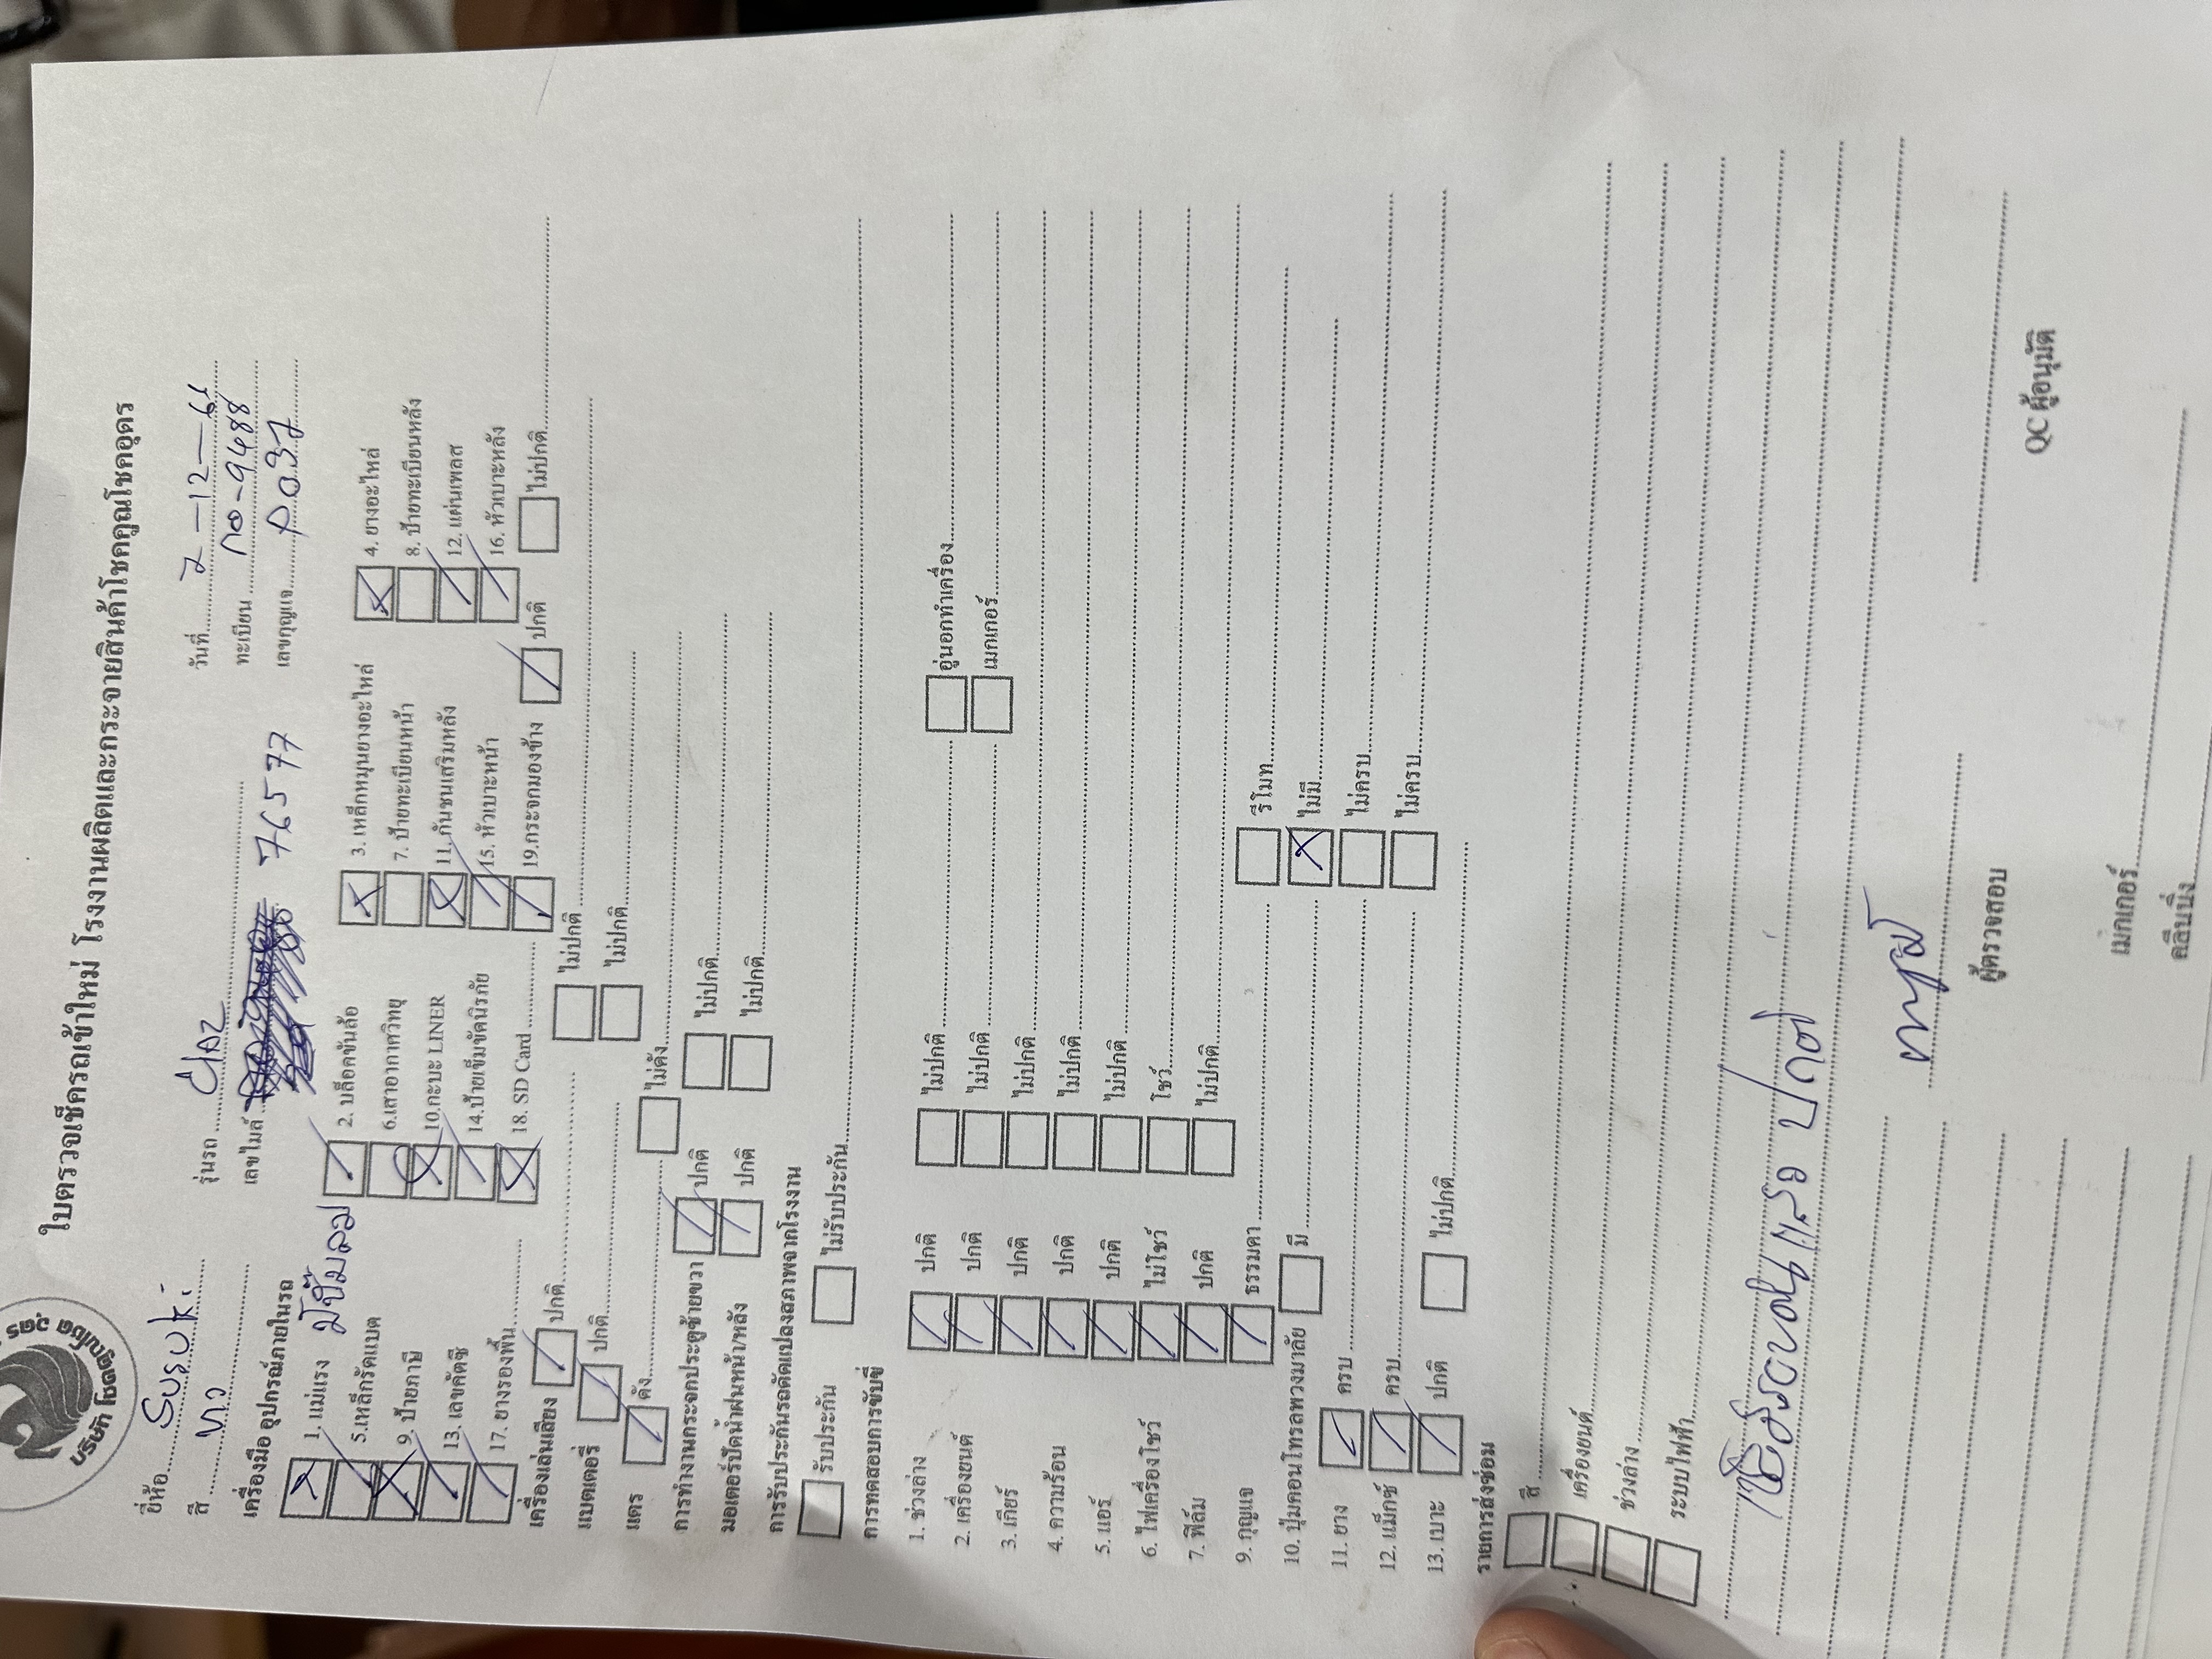 บริษัท โชคคูณโชค อุดร
ใบตรวจเช็ครถเข้าใหม่ โรงงานผลิตและกระจายสินค้าโชคคูณโชคอุดร
ยี่ห้อ Suzuki รุ่นรถ ciaz วันที่ 2-12-64
สี เทา เลขไมล์ 76577 ทะเบียน กอ-9488
เลขกุญแจ P037
เครื่องมือ อุปกรณ์ภายในรถ มีปั๊มลม
1. แม่แรง 2. บล็อคขันล้อ 3. เหล็กหมุนยางอะไหล่ 4. ยางอะไหล่
5.เหล็กรัดแบต 6.เสาอากาศวิทยุ 7. ป้ายทะเบียนหน้า 8. ป้ายทะเบียนหลัง
9. ป้ายภาษี 10.กะบะ LINER 11.กันชนเสริมหลัง 12. แผ่นเพลส
13. เลขคัดซี 14.ป้ายเข็มขัดนิรภัย 15. หัวเบาะหน้า 16. หัวเบาะหลัง
17. ยางรองพื้น 18. SD Card 19.กระจกมองข้าง ปกติ ไม่ปกติ
เครื่องเล่นเสียง ปกติ ไม่ปกติ
แบตเตอรี่ ปกติ ไม่ปกติ
แตร ดัง ไม่ดัง
การทำงานกระจกประตูซ้ายขวา ปกติ ไม่ปกติ
มอเตอร์ปัดน้ำฝนหน้า/หลัง ปกติ ไม่ปกติ
การรับประกันรถดัดแปลงสภาพจากโรงงาน
รับประกัน ไม่รับประกัน
การทดสอบการขับขี่
1. ช่วงล่าง ปกติ ไม่ปกติ อู่นอกทำเครื่อง
2. เครื่องยนต์ ปกติ ไม่ปกติ เมกเกอร์
3. เกียร์ ปกติ ไม่ปกติ
4. ความร้อน ปกติ ไม่ปกติ
5. แอร์ ปกติ ไม่ปกติ
6. ไฟเครื่องโชว์ ไม่โชว์ โชว์
7. ฟิล์ม ปกติ ไม่ปกติ
9. กุญแจ ธรรมดา รีโมท
10. ปุ่มคอนโทรลพวงมาลัย มี ไม่มี
11. ยาง ครบ ไม่ครบ
12. แม็กซ์ ครบ ไม่ครบ
13. เบาะ ปกติ ไม่ปกติ
รายการส่งซ่อม
สี
เครื่องยนต์
ช่วงล่าง
ระบบไฟฟ้า
ปกติ
ผู้ตรวจสอบ QC ผู้อนุมัติ
เมกเกอร์
คลีนนิ่ง